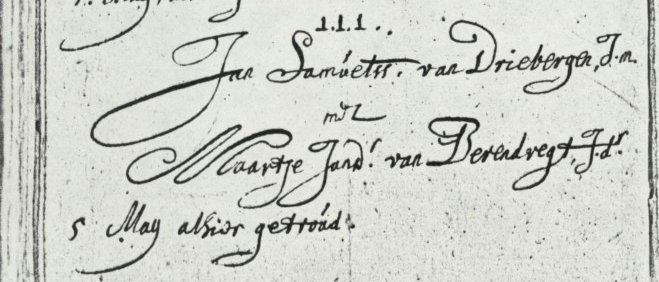 1.1.1..
Jan Samúelss. van Driebergen, J.m.
met
Maartje Jansd.r van Berendregt, J.d.r
5 May alhier getroúd.